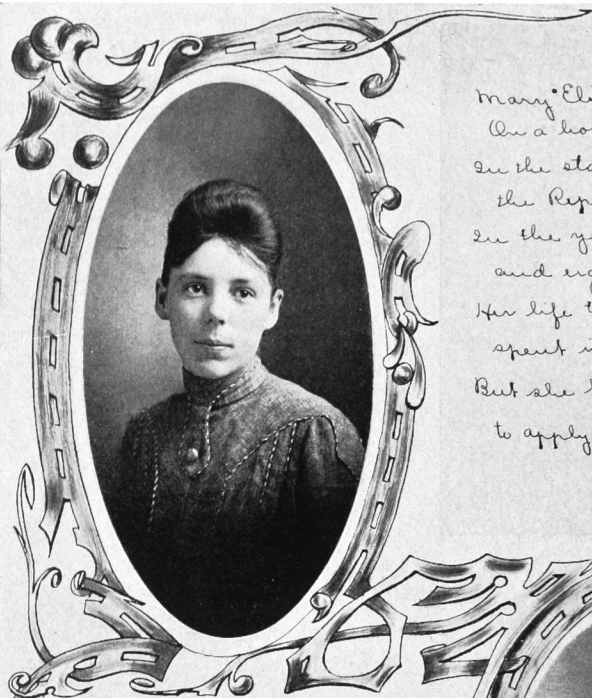 Mary Eli
On a ho
In the sta
the Rep
In the ye
and eig
Her life t
spent i
But she l
to apply